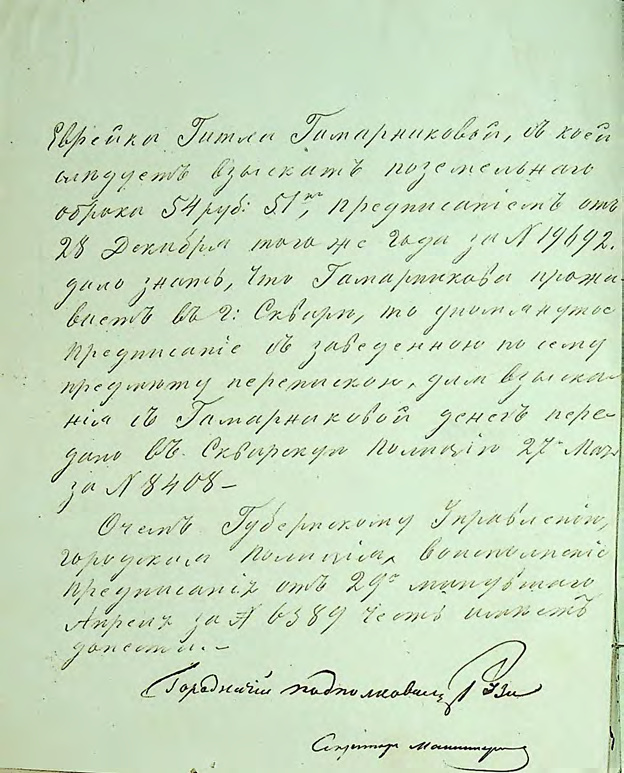 Еврейки Гитли Гамарниковой, съ коей
слѣдуетъ взыскать поземельнаго
оброка 54 руб: 51 к, предписаніемъ отъ
28 Декабря того же года за N 19692.
дало знать, что Гамарникова прожи-
ваетъ въ г: Сквирѣ, то упомянутое
предписаніе съ заведенною по сему
предмѣту перепискою, для взыска-
нія съ Гамарниковой денегъ пере-
дано въ Сквирскую Полицію 27 Мая
за N 8408 —
О чемъ Губернскому Управленію,
городская Полиція, во исполненіе
предписанія отъ 29 минувшаго
Апреля за N 6389 честь имѣетъ
донести. —
Городничій подполковникъ
Секретарь